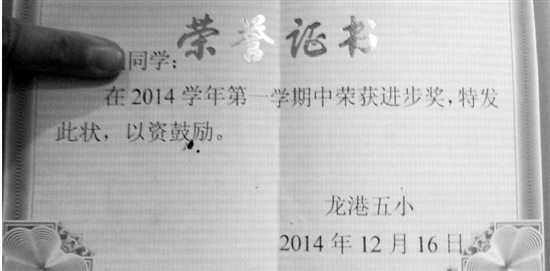 荣誉证书
同学：
在2014学年第一学期中荣获进步奖，特发
此状，以资鼓励。
龙港五小
2014年12月16日